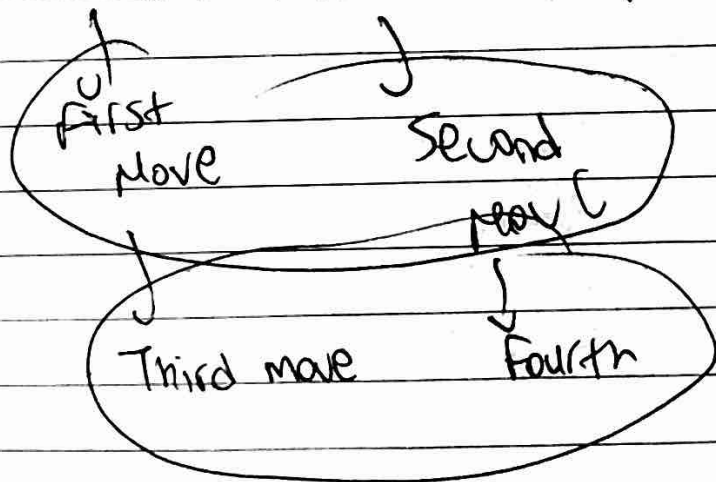 First
Move
Second
Move
Third move
Fourth